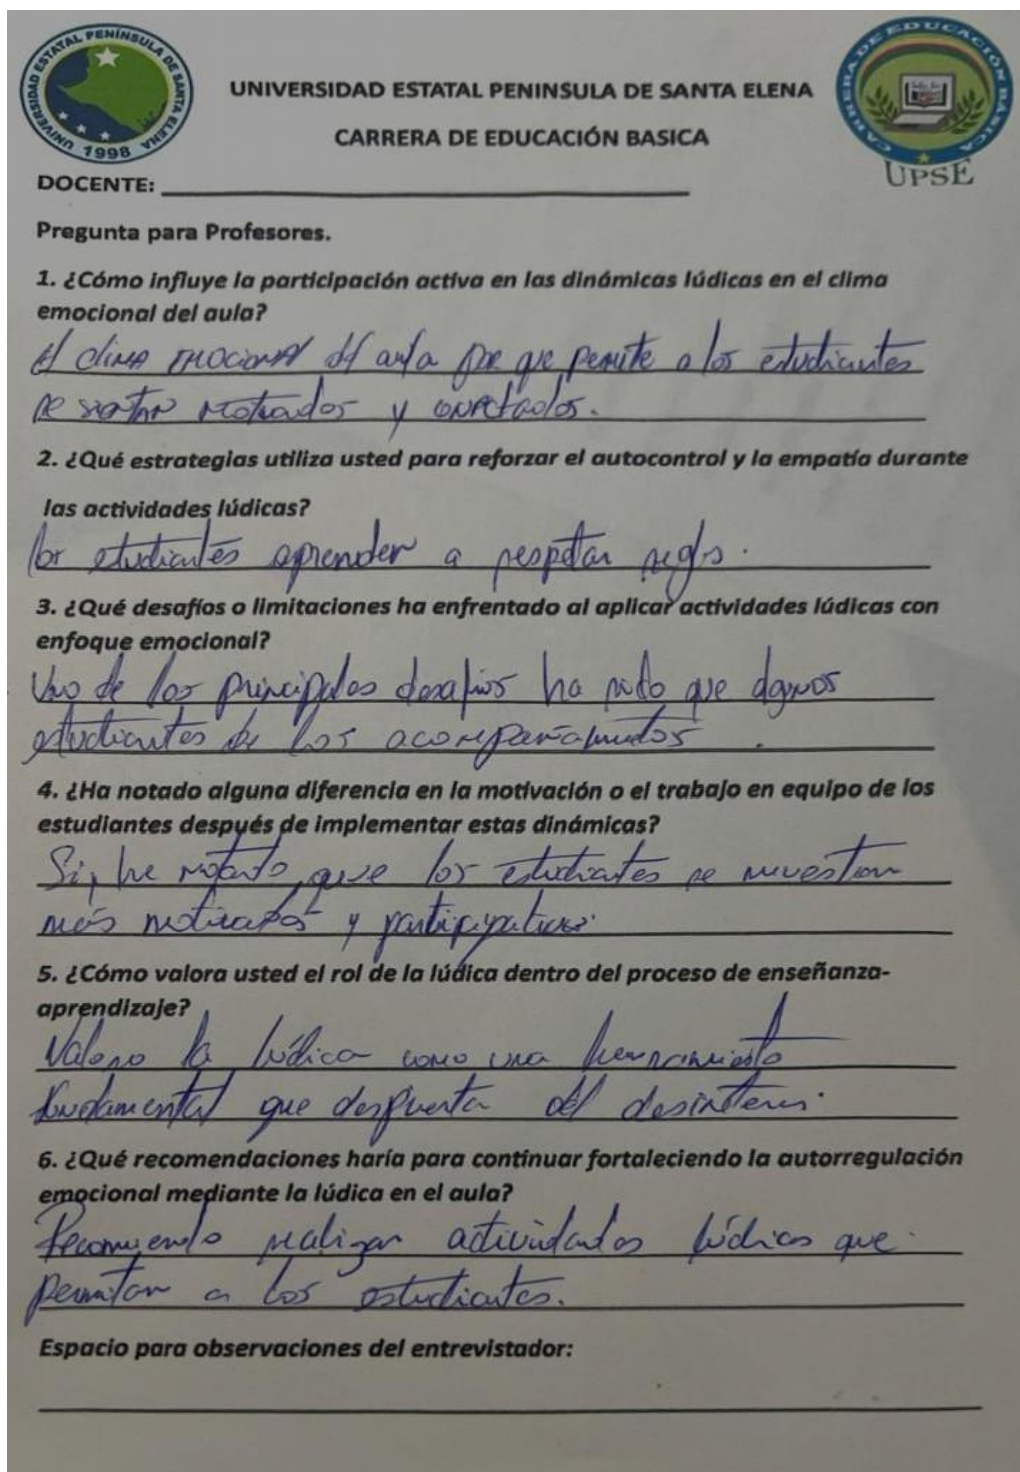 UNIVERSIDAD ESTATAL PENÍNSULA DE SANTA ELENA
1998
CARRERA DE EDUCACIÓN BASICA
UPSE
UNIVERSIDAD ESTATAL PENINSULA DE SANTA ELENA
CARRERA DE EDUCACIÓN BASICA
DOCENTE:
Pregunta para Profesores.
1. ¿Cómo influye la participación activa en las dinámicas lúdicas en el clima
emocional del aula?
El clima emocional del aula por que permite a los estudiantes
se sientan motivados y conectados.
2. ¿Qué estrategias utiliza usted para reforzar el autocontrol y la empatía durante
las actividades lúdicas?
los estudiantes aprenden a respetar regls.
3. ¿Qué desafíos o limitaciones ha enfrentado al aplicar actividades lúdicas con
enfoque emocional?
Uno de los principales desafios ha sido que algunos
estudiantes de los acompañamientos.
4. ¿Ha notado alguna diferencia en la motivación o el trabajo en equipo de los
estudiantes después de implementar estas dinámicas?
Si, he notado que los estudiantes se muestran
más motivados y
5. ¿Cómo valora usted el rol de la lúdica dentro del proceso de enseñanza-
aprendizaje?
Valoro la lúdica como una herramienta
fundamental que despuerta del desinteres.
6. ¿Qué recomendaciones haría para continuar fortaleciendo la autorregulación
emocional mediante la lúdica en el aula?
Recomiendo realizar actividades lúdicas que
permitan a los estudiantes.
Espacio para observaciones del entrevistador: